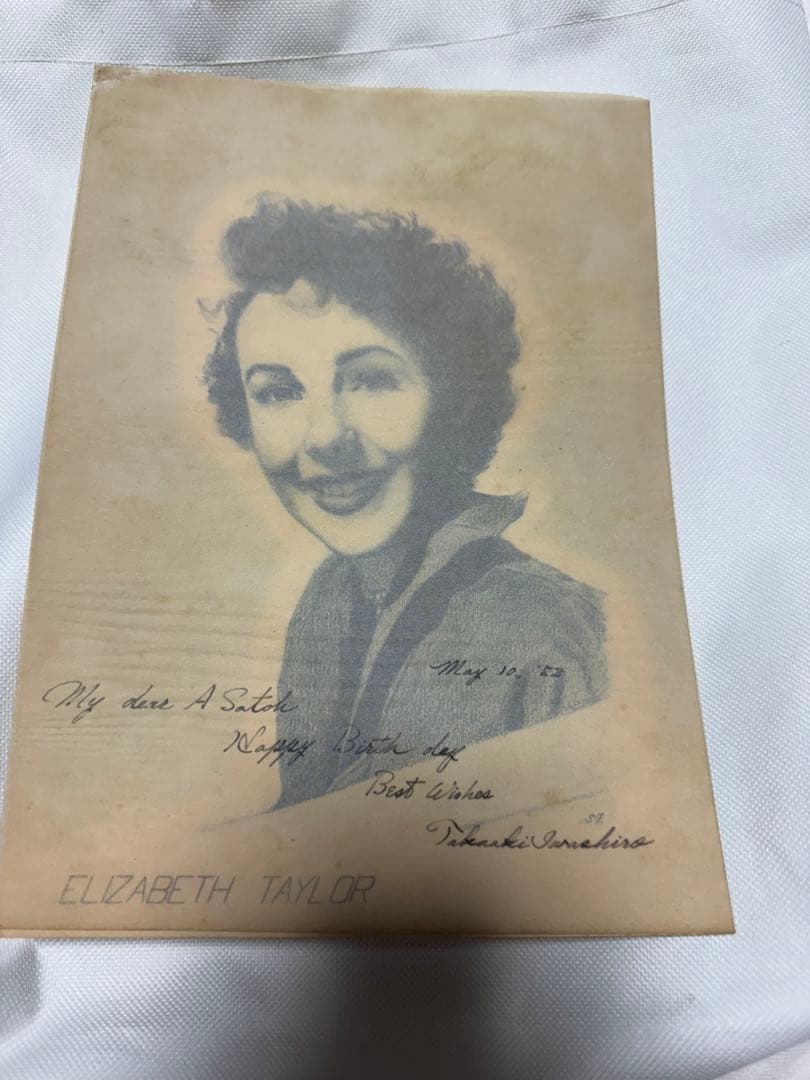 May 10, '52
My dear A Satoh
Happy Birth day
Best Wishes
'51.
Takaaki Iwashiro
ELIZABETH TAYLOR